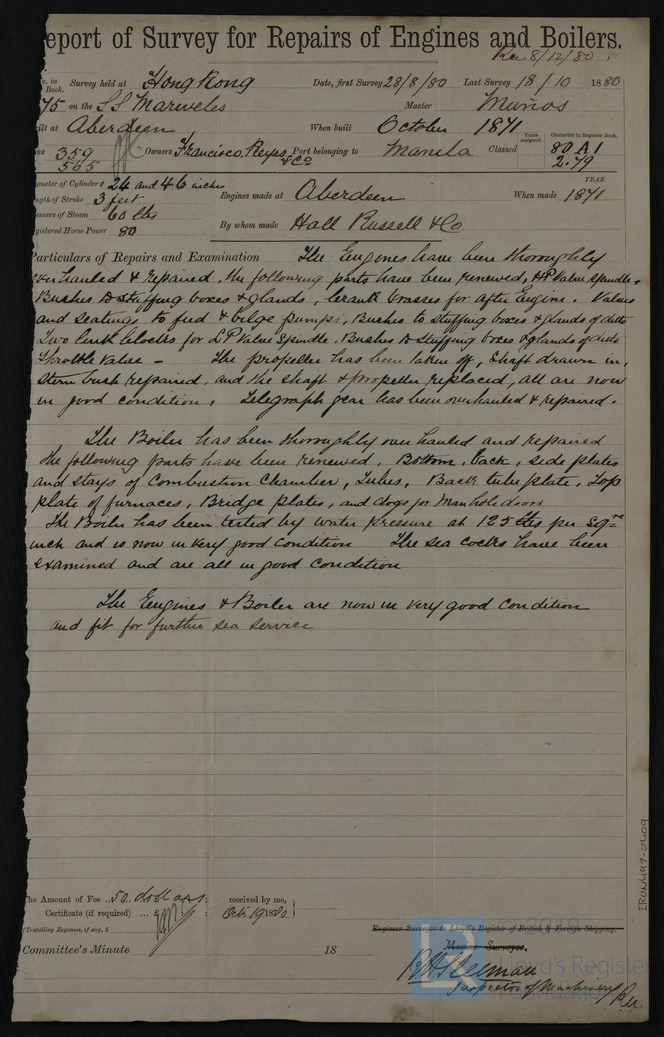 eport of Survey for Repairs of Engines and Boilers.
Rec 8/12/80
o. in Book. Survey held at Hong Kong Date, first Survey 28/8/80 Last Survey 18/10 1880
75 on the SS Mariveles Master Muños
ilt at Aberdeen When built October 1871
ns 359 Owners Francisco, Reyes & Co Port belonging to Manila Classed Years assigned. Character in Register Book. 80 A1
565 2.79
ameter of Cylinders 26 and 46 inches YEAR.
ngth of Stroke 3 feet Engines made at Aberdeen When made 1871
essure of Steam 60 lbs
egistered Horse Power 80 By whom made Hall Russell & Co
Particulars of Repairs and Examination The Engines have been thoroughly
overhauled & repaired, the following parts have been renewed, HP Valve Spindle,
Bushes to stuffing boxes & glands, brasses for after Engine. Valves
and seatings to feed & bilge pumps, Bushes to stuffing boxes & glands of ditto
Two link blocks for LP Valve Spindle. Bushes to stuffing boxes & glands of ditto
Throttle Valve – The propeller has been taken off, Shaft drawn in,
stern bush repaired, and the shaft & propeller replaced, all are now
in good condition. Telegraph gear has been overhauled & repaired.
The Boiler has been thoroughly overhauled and repaired
the following parts have been renewed, Bottom, back, side plates
and stays of Combustion Chamber, Tubes, Back tube plate, Top
plate of furnaces, Bridge plates, and dogs for Manhole doors
The Boiler has been tested by water pressure at 125 lbs per Sqre
inch and is now in very good condition The sea cocks have been
examined and are all in good condition
The Engines & Boiler are now in very good condition
and fit for further sea service
The Amount of Fee .. 50. dollars : received by me,
Certificate (if required) ... Oct. 19 1880.
(Travelling Expenses, if any, £
Engineer Surveyor to Lloyd's Register of British & Foreign Shipping.
Committee's Minute 18
Marine Surveyor.
Inspector of Machinery
IRON497-0409
© 2019
Lloyd's Register
Foundation